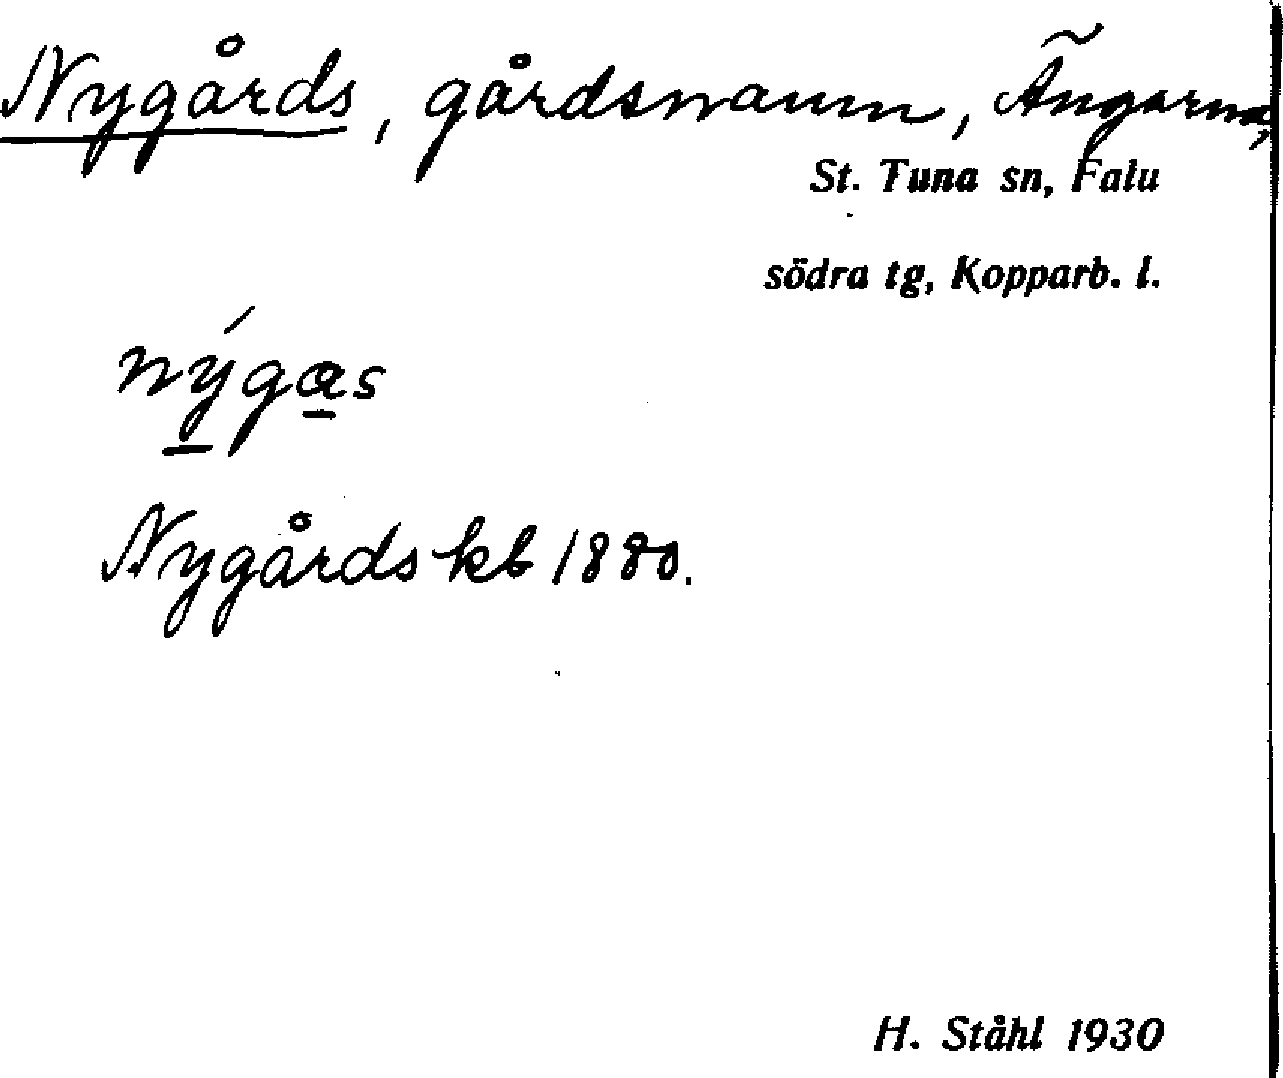 Nygårds, gårdsnamn, Ängarna,
St. Tuna sn, Falu
södra tg, Kopparb. l.
nýgas
Nygårds kb 1880.
H. Ståhl 1930